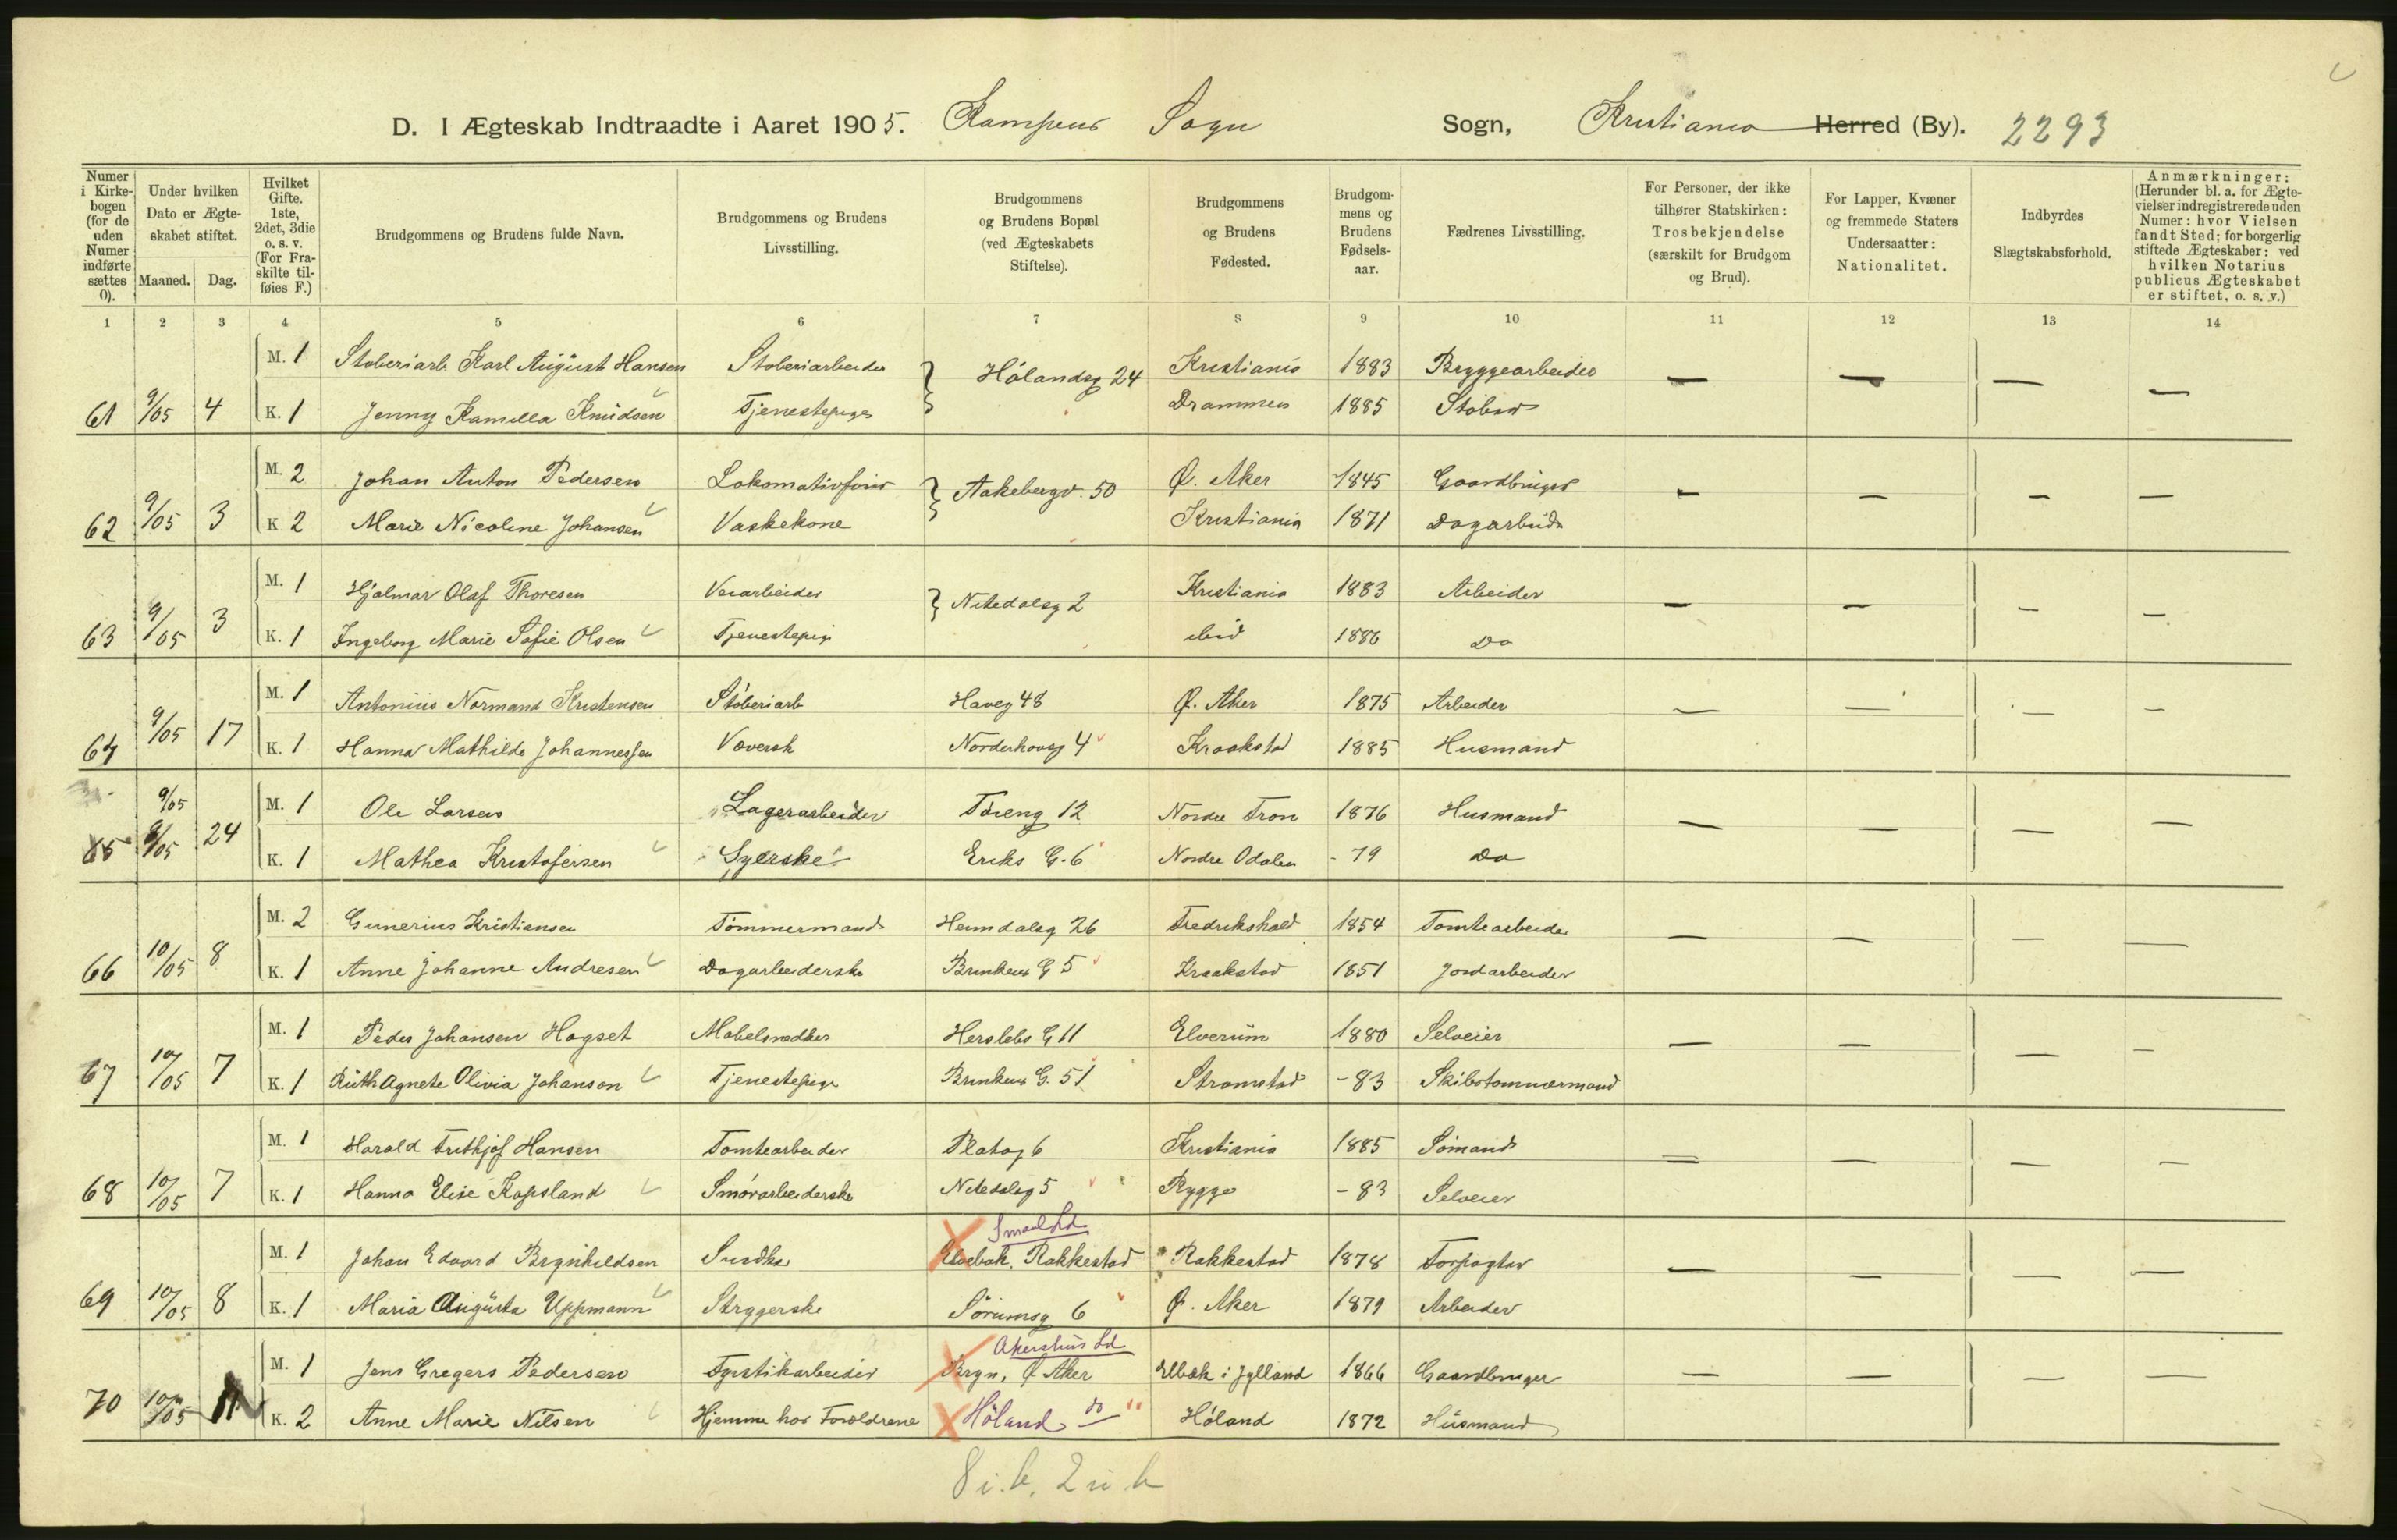 D. I Ægteskab Indtraadte i Aaret 1905. Kampens Sogn Sogn, Kristiania Herred (By). 2293
Numer i Kirkebogen (for de uden Numer indførte sættes 0).
Under hvilken Dato er Ægteskabet stiftet.
Maaned. Dag.
Hvilket Gifte. 1ste, 2det, 3die o. s. v. (For Fraskilte tilføies F.)
Brudgommens og Brudens fulde Navn.
Brudgommens og Brudens Livsstilling.
Brudgommens og Brudens Bopæl (ved Ægteskabets Stiftelse).
Brudgommens og Brudens Fødested.
Brudgommens og Brudens Fødselsaar.
Fædrenes Livsstilling.
For Personer, der ikke tilhører Statskirken: Trosbekjendelse (særskilt for Brudgom og Brud).
For Lapper, Kvæner og fremmede Staters Undersaatter: Nationalitet.
Indbyrdes Slægtskabsforhold.
Anmærkninger: (Herunder bl. a. for Ægtevielser indregistrerede uden Numer: hvor Vielsen fandt Sted; for borgerlig stiftede Ægteskaber: ved hvilken Notarius publicus Ægteskabet er stiftet, o. s. v.)
1 2 3 4 5 6 7 8 9 10 11 12 13 14
M. 1 Støberiarb Karl August Hansen Støberiarbeider Hølandsg 24 Kristiania 1883 Bryggearbeider — — — —
61 9/05 4 K. 1 Jenny Kamilla Knudsen Tjenestepige Drammen 1885 Støber
M. 2 Johan Anton Pedersen Lokomativfører Aakebergv. 50 Ø. Aker 1845 Gaardbruger — — — —
62 9/05 3 K 2 Marie Nicoline Johansen Vaskekone Kristiania 1871 Dagarbeide
M. 1 Hjalmar Olaf Thoresen Veiarbeider Nitedalsg 2 Kristiania 1883 Arbeider — — — —
63 9/05 3 K. 1 Ingeborg Marie Sofie Olsen Tjenestepige ibid 1886 Do
M. 1 Antonius Normand Kristensen Støberiarb Haveg 48 Ø. Aker 1875 Arbeider — — — —
64 9/05 17 K. 1 Hanna Mathilde Johannessen Væversk Norderhovsg 4 Kraakstad 1885 Husmand
9/05 M. 1 Ole Larsen Lagerarbeider Tøieng 12 Nordre Fron 1876 Husmand — — — —
65 9/05 24 K. 1 Mathea Kristofersen Syerske Eriks G. 6 Nordre Odalen - 79 Do
M. 2 Gunerius Kristiansen Tømmermand Heimdalsg 26 Fredrikshald 1854 Tomtearbeider — — — —
66 10/05 8 K. 1 Anne Johanne Andresen Dagarbeiderske Brinkens G 5 Kraakstad 1851 Jordarbeider
M. 1 Peder Johansen Hagset Møbelsnedker Herslebs G 11 Elverum 1880 Selveier — — — —
67 10/05 7 K. 1 Ruth Agnete Olivia Johanson Tjenestepige Brinkens G. 51 Strømstad - 83 Skibstømmermand
M. 1 Harald Frithjof Hansen Tomtearbeider Platog 6 Kristiania 1885 Sømand — — — —
68 10/05 7 K. 1 Hanna Elise Kapsland Smørarbeiderske Nitedalsg 5 Rygge - 83 Selveier
Smaal Ld
M. 1 Johan Edvard Brynhildsen Snedker Elvebak. Rakkestad Rakkestad 1878 Forpagter — — — —
69 10/05 8 K. 1 Maria Augusta Uppmann Strygerske Sørumsg 6 Ø. Aker 1879 Arbeider
Akershus Ld
M. 1 Jens Gregers Pedersen Fyrstikarbeider Bryn, Ø Aker Elbæk i Jylland 1866 Gaardbruger — — — —
70 10/05 11 K. 2 Anne Marie Nilsen Hjemme hos Forældrene Høland do Høland 1872 Husmand
8 i. b. 2 u. b